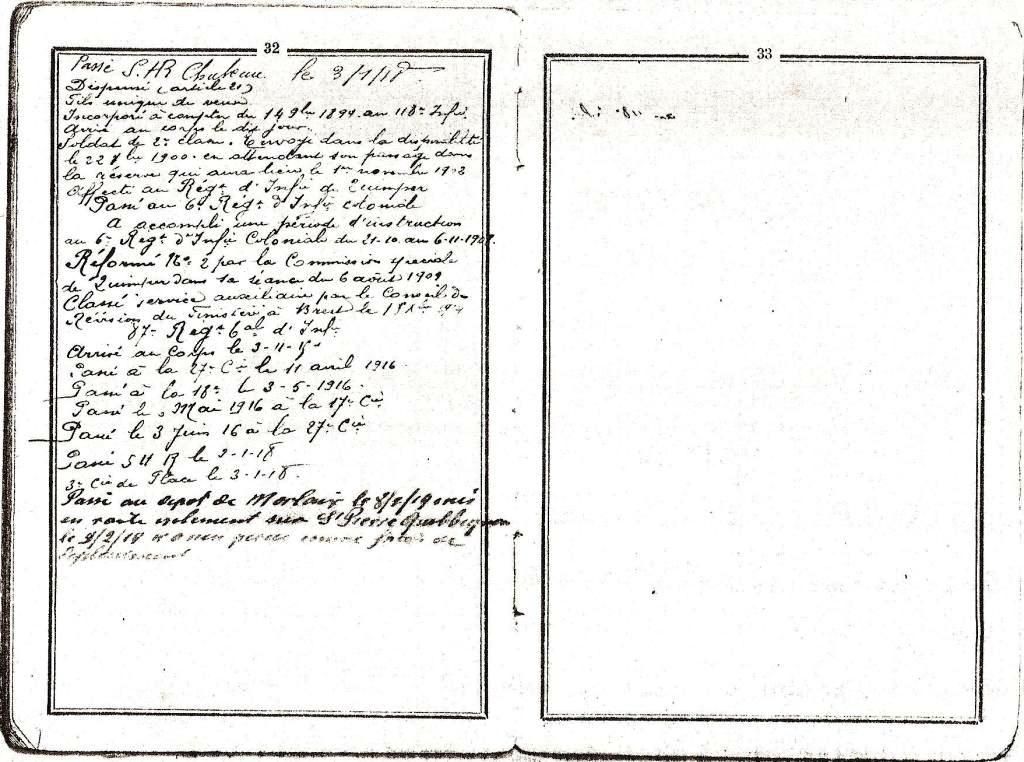 32
Passé S.H.R Chateau le 3/1/18
Dispensé (article 21)
Fils unique de veuve
Incorporé à compter du 14 9bre 1899 au 118e Infie
Arrivé au corps le dit jour.
Soldat de 2e classe. Envoyé dans la disponibilité
le 22 1900 en attendant son passage dans
la réserve qui aura lieu le 1er novembre 1902
Affecté au Régt d'Infie de Quimper
Passé au 6e Régt d'Infie coloniale
A accompli une période d'instruction
au 6e Régt d'Infie Coloniale du 21-10 au 6-11-1907.
Réformé No 2 par la Commission spéciale
de Quimper dans sa séance du 6 août 1909
Classé service auxiliaire par le Conseil de
Révision du Finistère à Brest le
87e Régt d'Infie
Arrivé au Corps le 3-11-15
Passé à la 27e Cie le 11 avril 1916
Passé à la 18e le 3-5-1916.
Passé le Mai 1916 à la 17e Cie
Passé le 3 Juin 16 à la 27e Cie
Passé S H R le 2-1-18
3e Cie de Place le 3-1-18.
Passé au depot de Morlaix le mis
en route isolement sur St Pierre Quilbignon
le 2/2/18 n'a rien perçu comme frais de
déplacement
33